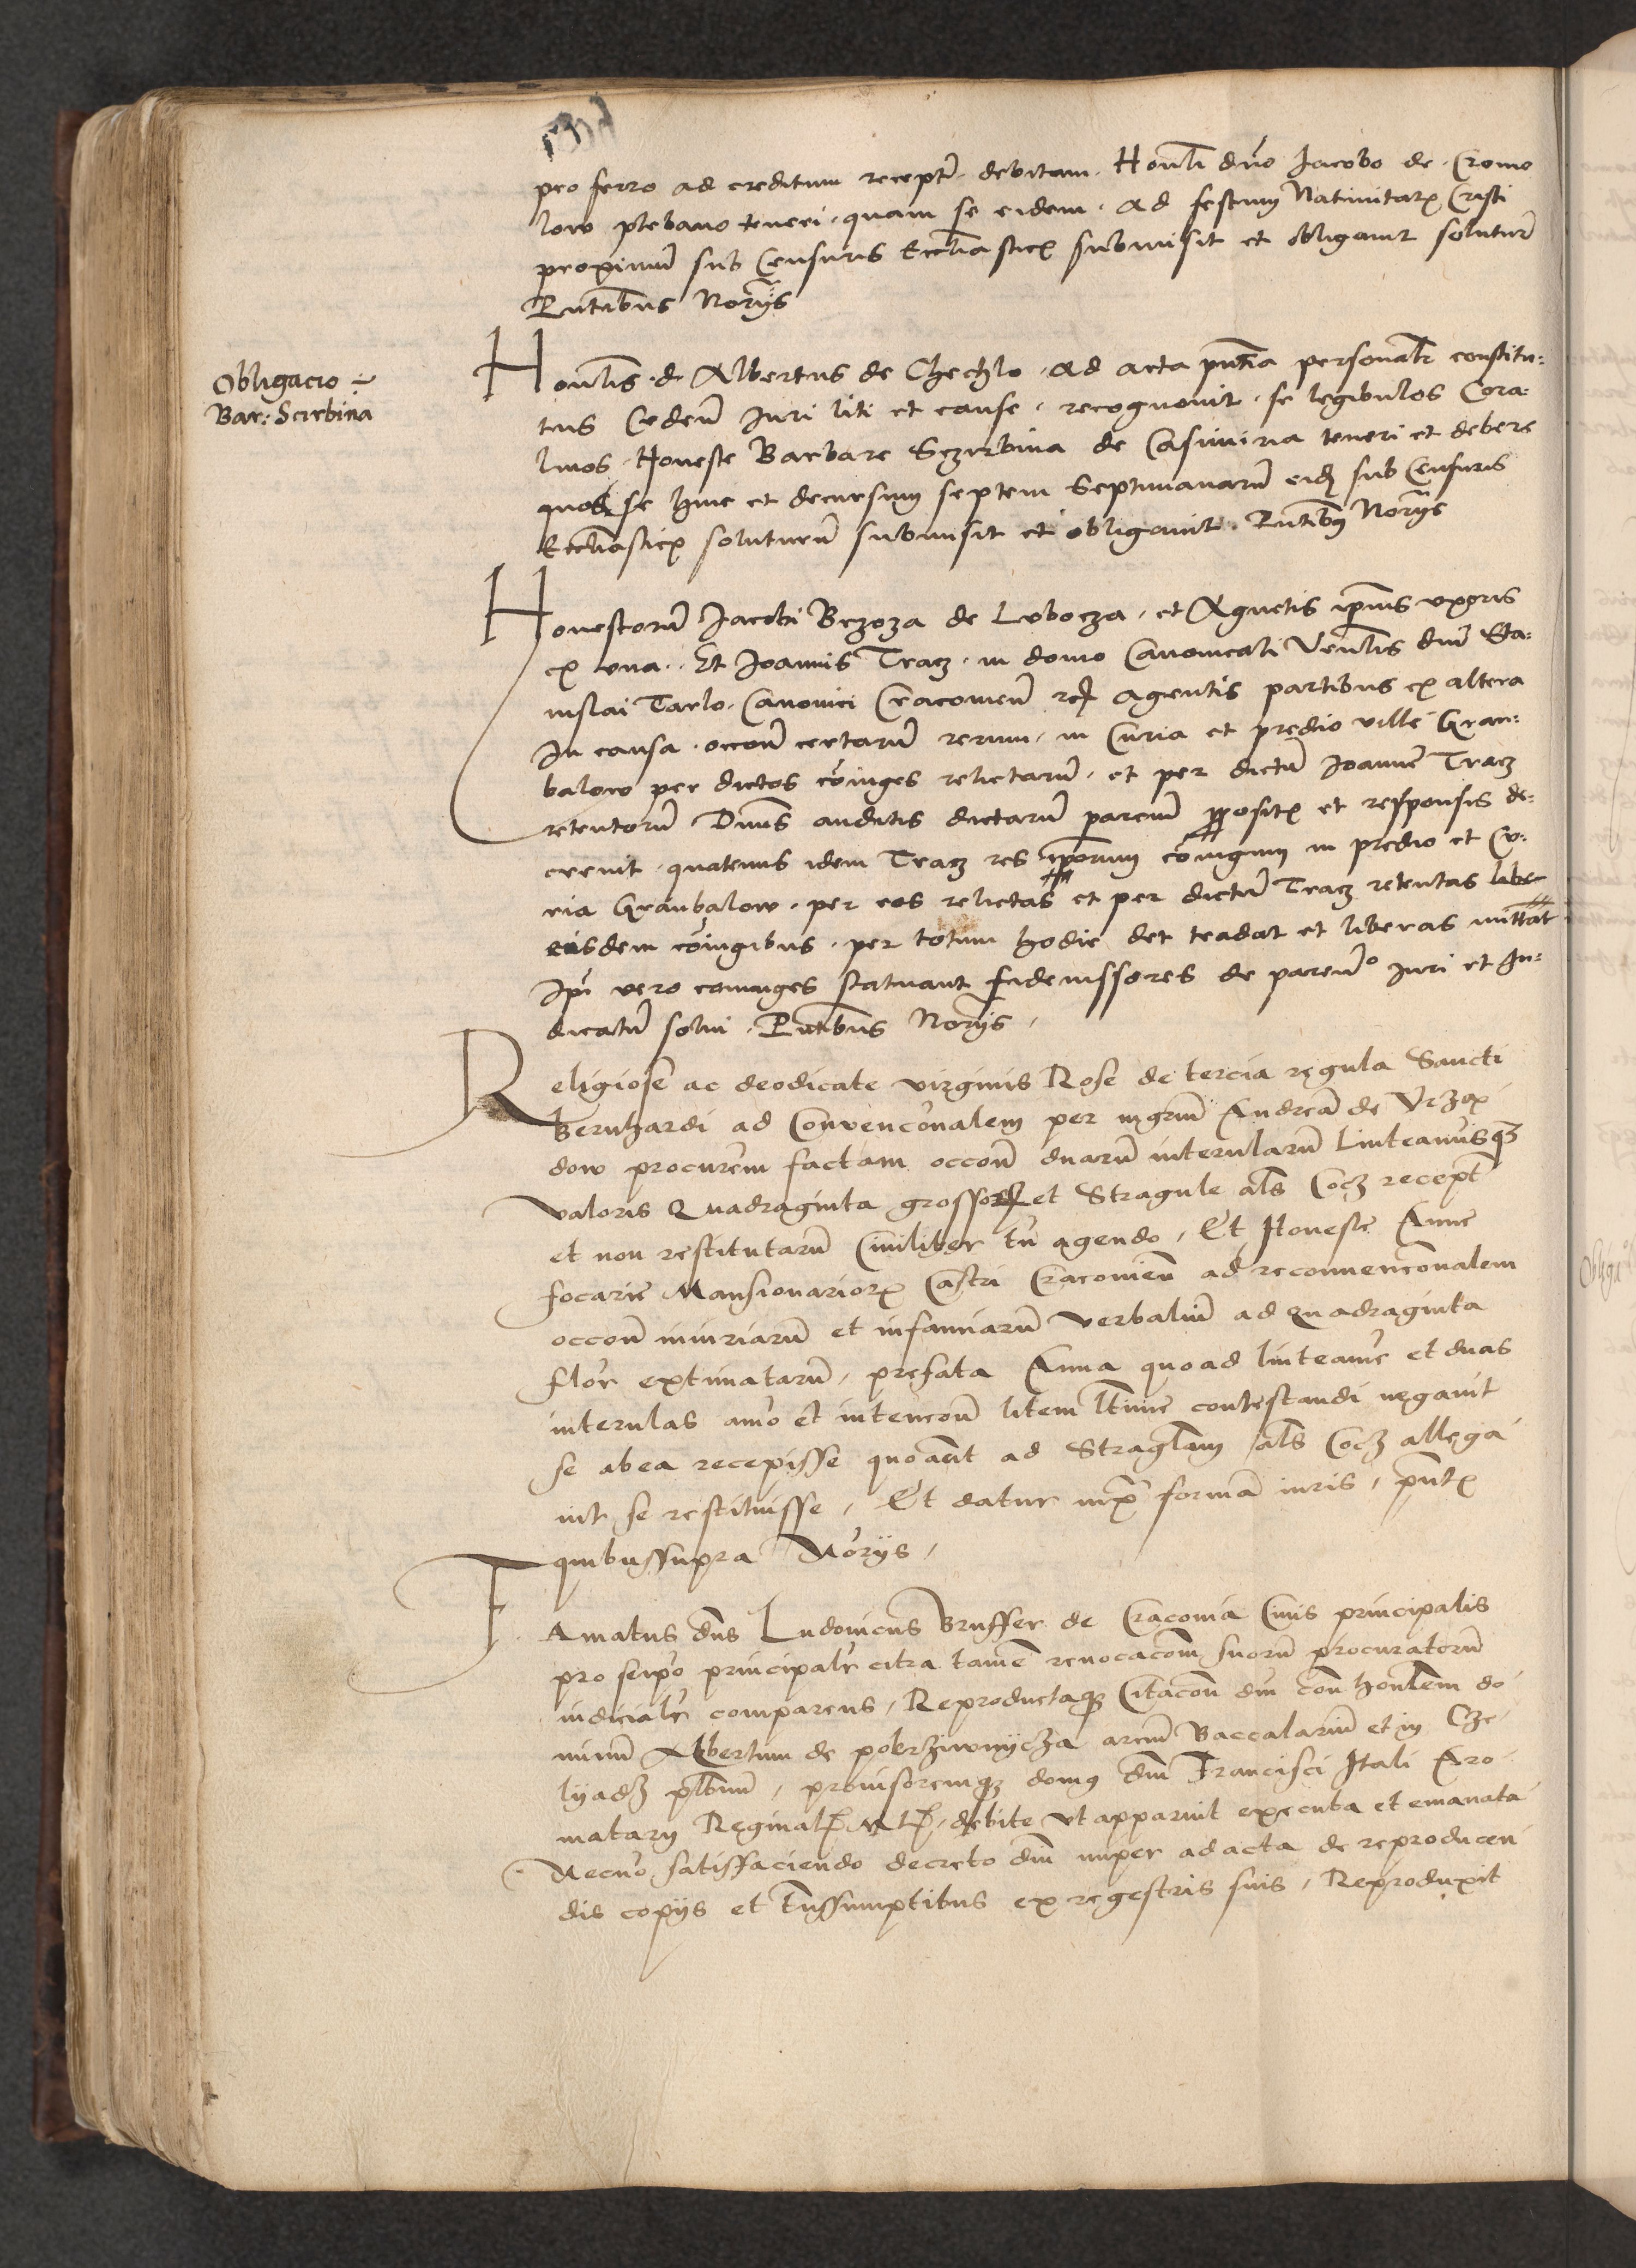 pro ferro ad creditum recept̄ debitam. Honlī dn̄o Jacobo de Cromo
low plebano teneri. quam se eidem. ad festum Natiuitatꝭ Cristi
proximū sub Censuris Ecclīasticꝭ submisit et obligauit solutur̄
Pn̄tibus Nor̄ijs
Obligacio
Bar: Scirbina
Honlīs. d. Albertus de Chechlo. ad acta pn̄tia personalr̄ constitu-
tus Cedeñ Juri liti et cause. recognouit. se legibulos Cora-
linos. Honeste Barbare Sczirbina de Casimiria teneri et debere
quos se hinc et decursum septem Septimanarū eidꝫ sub Censuris
Ecclīasticꝭ soluturū submisit et obligauit. Pn̄tibꝰ Nor̄ijs
Honestorū Jacobi Brzoza de Lubocza. et Agnetis ip̄ius vxoris
ex vna. Et Joannis Tracz. in domo Canonicali Ven̄lis dn̄i Sta-
nislai Tarlo. Canonici Cracouien̄ agentis partibus ex altera
In causa. occōne certarū rerum. in Curia et predio ville Gran-
balow per dictos cōiuges relictarū. et per dictū Joannē Tracz
retentorū Dn̄us auditis dictarū parciū propositꝭ et responsis de-
creuit. quatenus idem Tracz res ip̄orum cōiugum in predio et Cu-
ria Granbalow. per eos relictas et per dictū Tracz retentas libe
eisdem cōiugibus. per totum hodie det tradat et liberas mittat
Ip̄i vero coniuges statuant fideiussores de parendo Juri et Iu-
dicatū solui. Pn̄tibus Nor̄ijs.
Religiose ac deodicate virginis Rose de tercia regula Sancti
Bernhardi ad Conuenc̄onalem per mgr̄m Andreā de Vrzꝭ
dow procurem̄ factam occōne duarū interularū Linteaminisqꝫ
valoris Quadraginta grossorꝝ et Stragule als̄ Cocz recept̄
et non restitutarū Ciuiliter tn̄ agendo, Et Honeste Anne
focarie Mansionariorꝝ Castri Cracouien̄ ad reconuenc̄onalem
occōne iniuriarū et infamiarū verbaliū ad Quadraginta
flor̄ extimatarū, prefata Anna quoad linteamē et duas
interulas aīo et intencōne litem ltīme contestandi negauit
se abea recepisse quo aūt ad Stragulam als̄ Cocz allega
uit se restituisse, Et datur iuxꝭ formā iuris, pn̄tꝭ
quibussupra Nor̄ijs,
Famatus dn̄s Ludouicus Brusser de Cracouia Ciuis principalis
pro seip̄o principalr̄ citra tamē reuocacōnem suorū procuratorū
iudicialr̄ comparens, Reproductaqꝫ Citacōne dn̄i con̄ honlēm do
minum Albertum de pobrzuwnycza arciū Baccalariū et in Cze
lyadz plb̄num, prouisoremqꝫ domꝰ dn̄i Francisci Itali Aro
matarij Reginalꝭ debite vt apparuit executa et emanata
Necn̄o satisfaciendo decreto dn̄i nuper ad acta de reproducen
dis copijs et tn̄ssumptibus ex regestris suis, Reproduxit